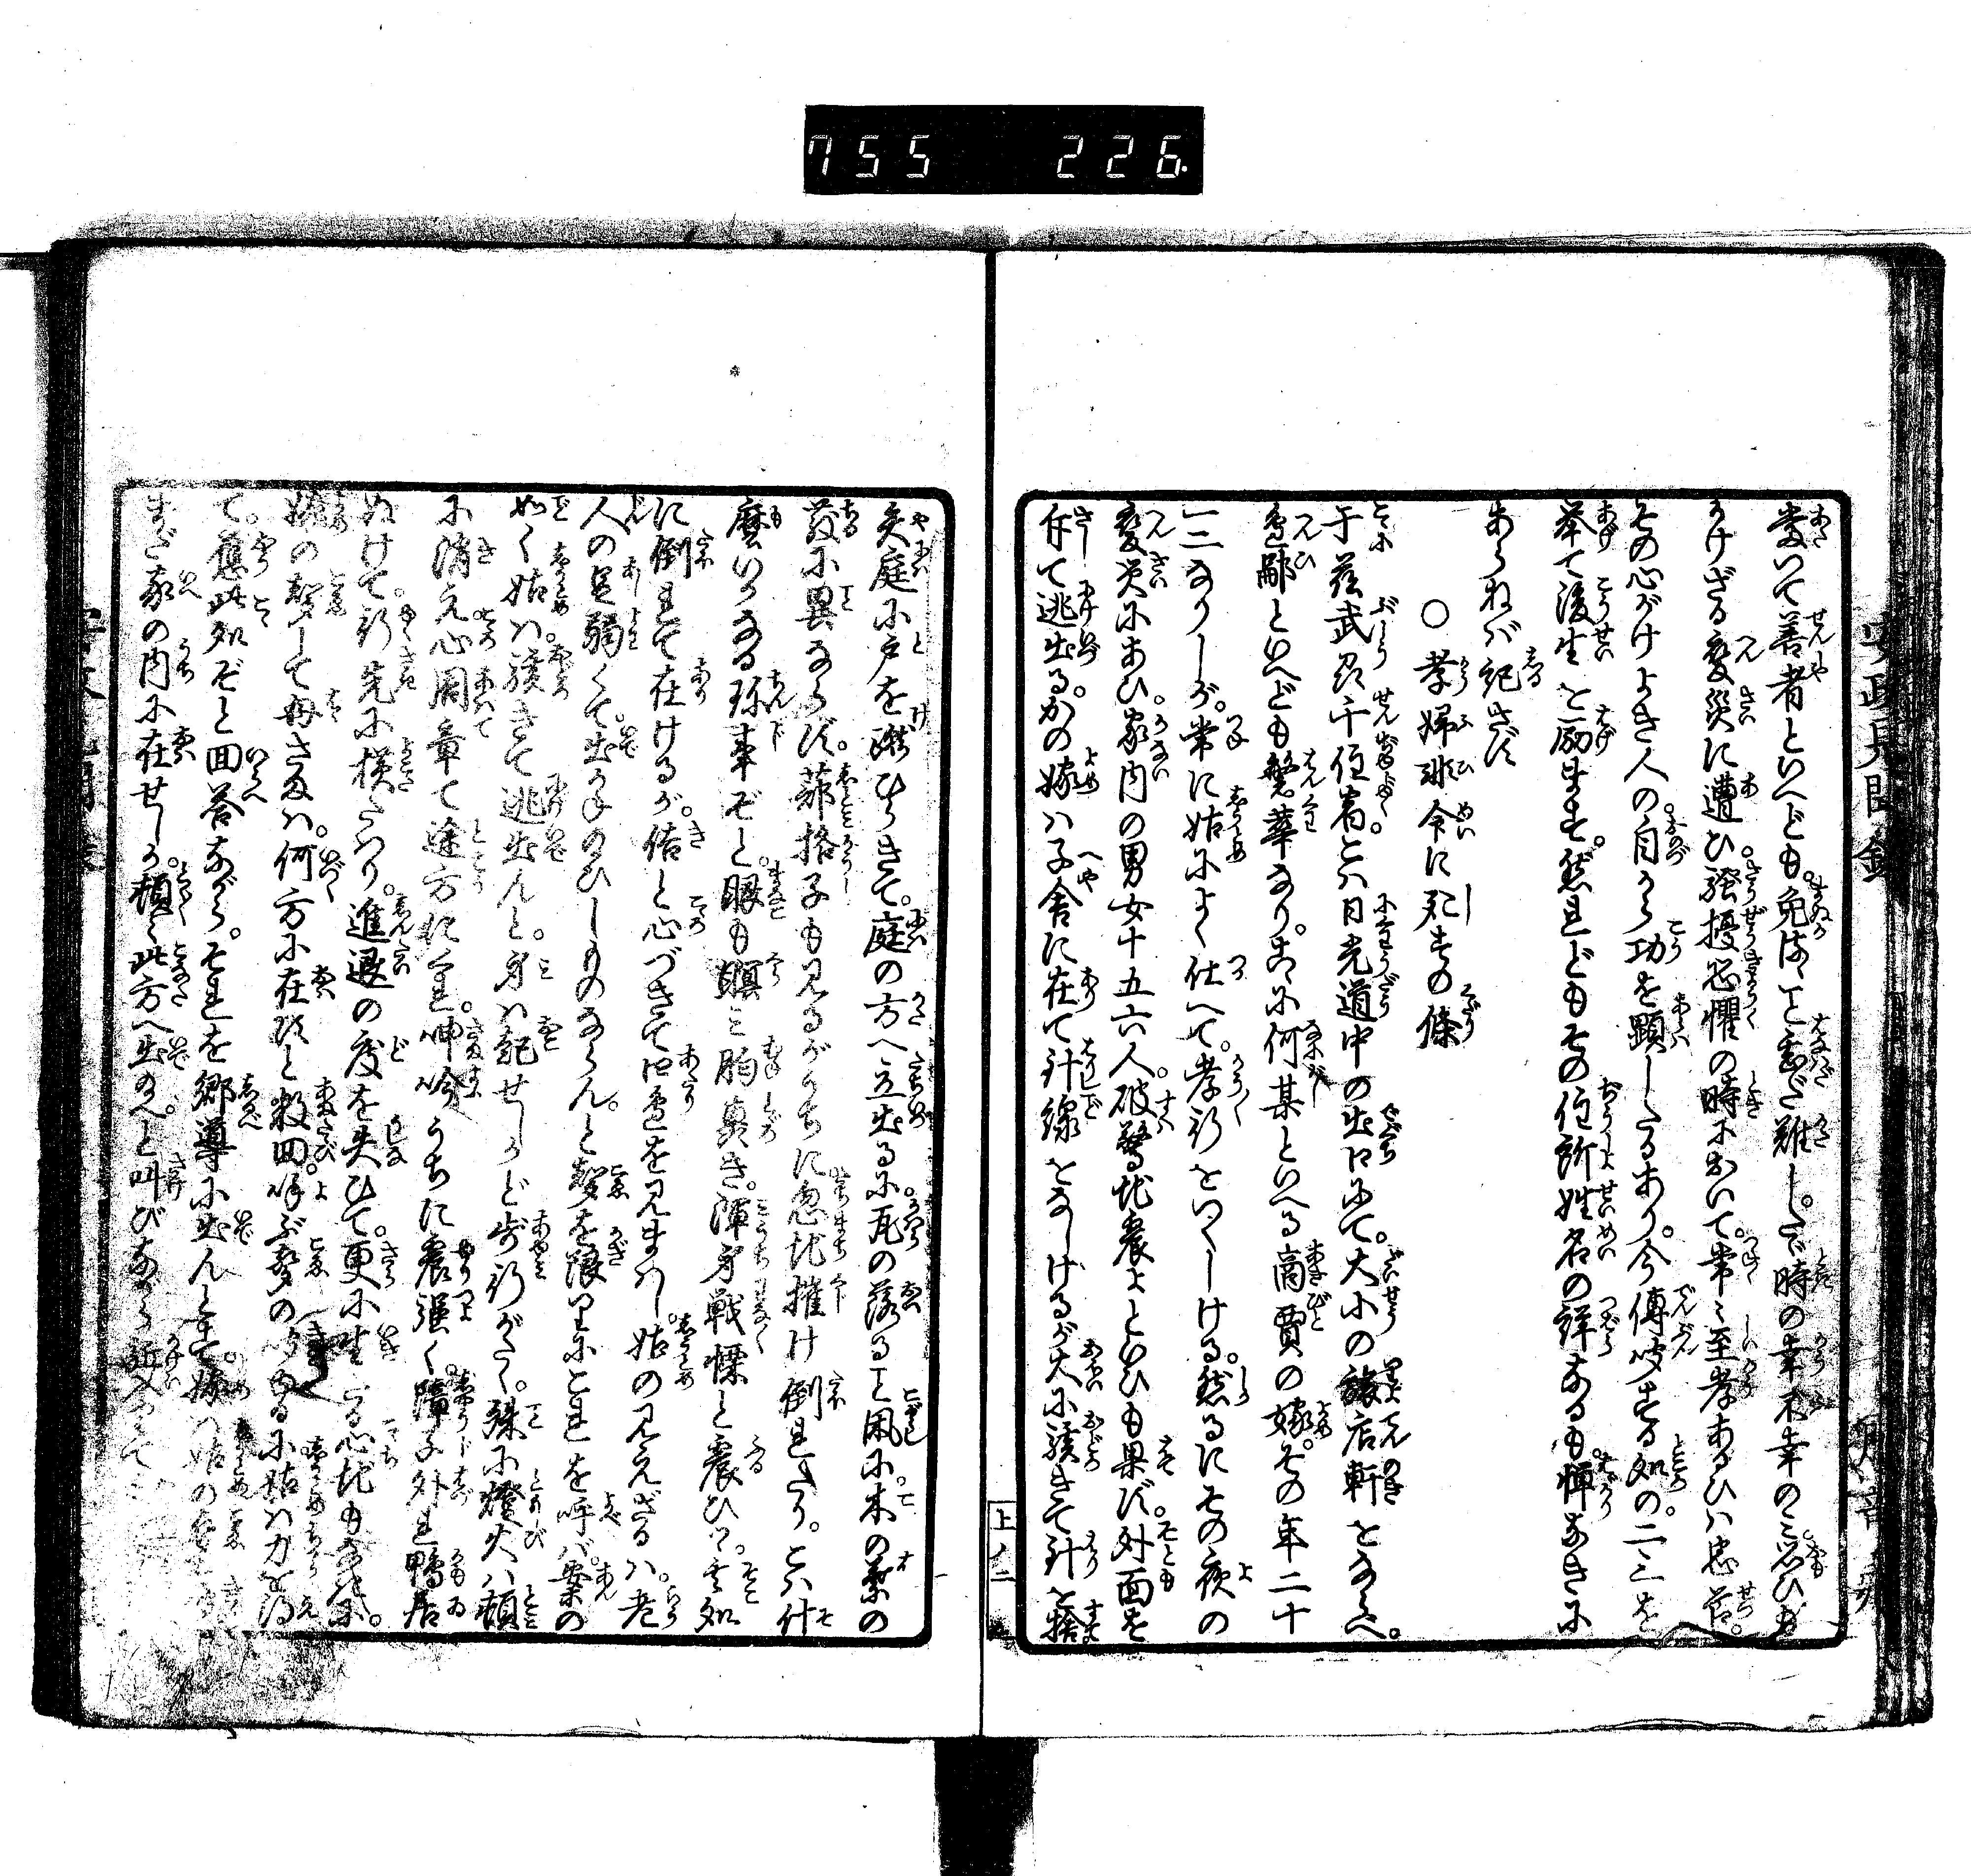 755 226.
安政見聞録
襲いて善者といへども。免るゝこと甚だ難し。たゞ時の幸不幸のミ。思ひ設
うけざる変災に遭ひ。騒擾恐懼の時において。常に至孝あるひハ忠節。
その心がけよき人の。自から功を顕したるあり。今傳聞する処の。二三を
挙て後生を励ます。然れどもその住所姓名の詳なるも。憚なきに
あらねバ紀さず
○孝婦非命に死すの條
于茲武州千住宿。とハ日光道中の出口にて。大小の旅店軒をならべ。
邊鄙といへども繁華なり。爰に何某といへる商賈の嫁。その年二十
一二なりしが。常に姑によく仕へて。孝行をつくしける。然るにその夜の
変災にあひ。家内の男女十五六人。破驚地震よといひも果ず。外面を
斥て逃出る。かの嫁ハ子舎に在て針線をなしけるが大に驚きて針を捨
上ノ二
矢庭に戸を蹴ひらきて。庭の方へ立出るに。瓦の落ること凩に木の葉の
散に異ならず。蔀格子も見るがうちに忽地摧け倒れたり。こハ什
麼いかなる珍事ぞと。眼も瞑ミ胸轟き。渾身戦慄と震ひツヽ其処
に倒れて在けるが。佶と心づきて四邊を見まハし姑の見えざるハ。老
人の足弱くて。出かねのひしものならん。と声を限りにこれを呼バ。案の
如く姑ハ。驚きて逃出んと。身ハ起せしかど歩行がたく。殊に燈火ハ頓
に消え心周章て途方にくれ。呻吟うちに震強く。障子外れ鴨居
ぬけて。行先に横たハり。進退の度を失ひて。更に生たる心地もなきに。
嫁の声して母さまハ。何方に在すと数回呼ぶ声の聞ゆるに姑ハ力を得
て。應此処ぞと回答ながら。それを郷導に出んとす。嫁ハ姑の
まだ家の内に在せしか。頓く此方へ出給へ。と叫びながら